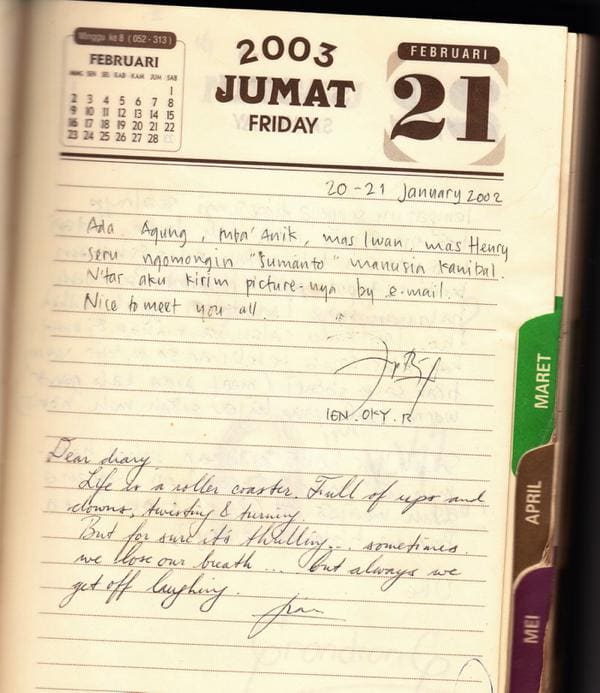 Minggu ke 8 (052 - 313)
FEBRUARI
MING SEN SEL RAB KAM JUM SAB
1
2 3 4 5 6 7 8
9 10 11 12 13 14 15
16 17 18 19 20 21 22
23 24 25 26 27 28
2003
JUMAT
FRIDAY
FEBRUARI
21
20-21 January 2002
Ada Agung, mba' Anik, mas Iwan, mas Henry
seru ngomongin "Sumanto" manusia kanibal.
N'tar aku kirim picture-nya by e-mail.
Nice to meet you all.
IEN. OKY. R
Dear diary
Life is a roller coaster. Full of ups and
downs, twisting & turning.
But for sure it's thrilling... sometimes
we lose our breath... but always we
get off laughing.
MARET
APRIL
MEI